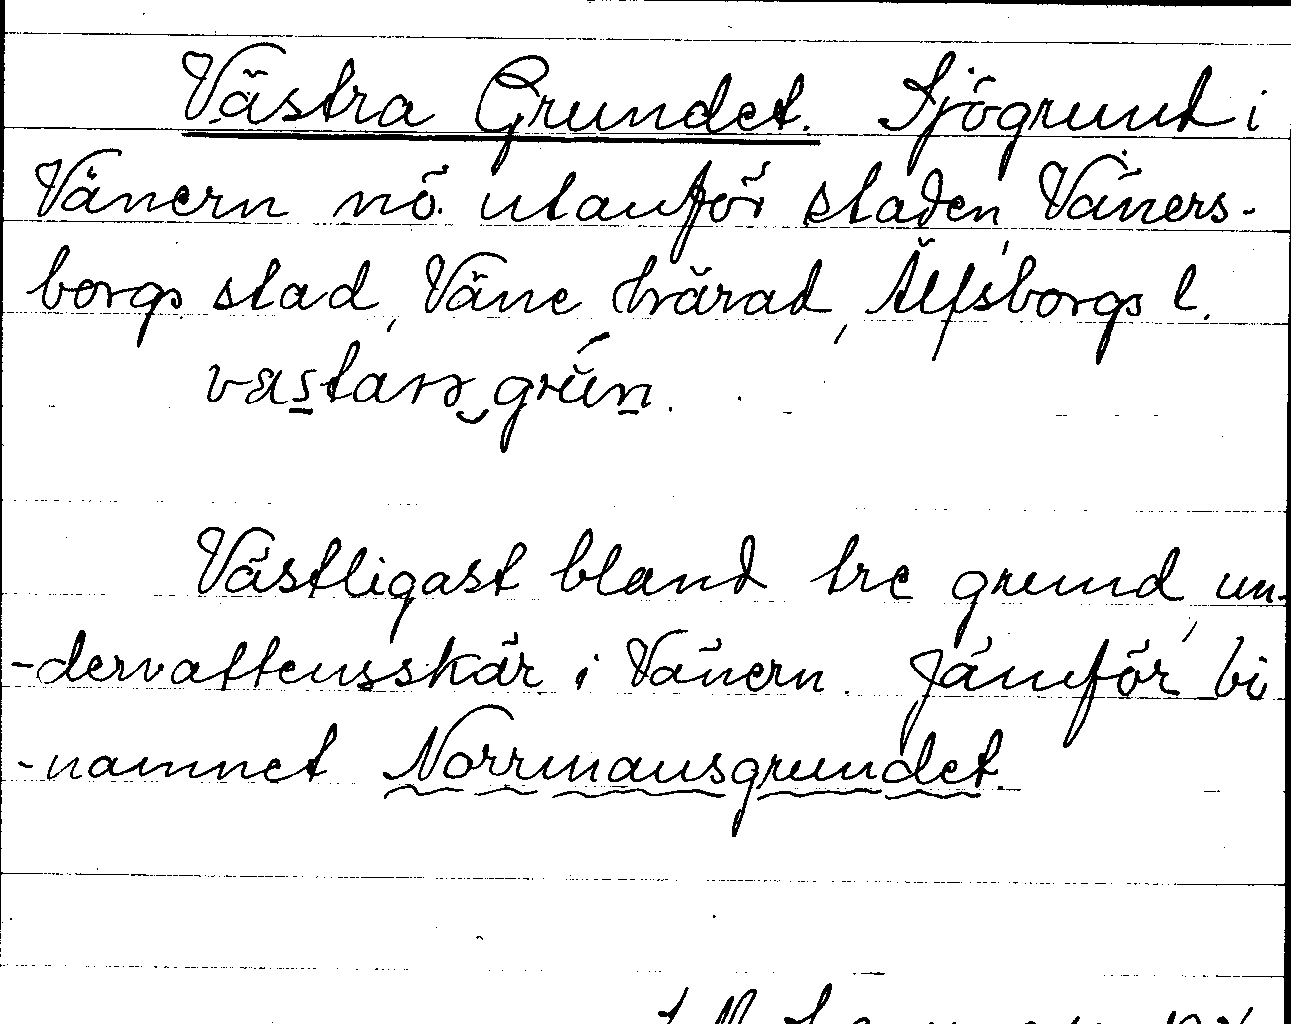 Västra Grundet. Sjögrund i
Vänern nö. utanför staden, Väners-
borgs stad, Väne härad, Älfsborgs l.
Västligast bland tre grund, un-
-dervattensskär i Vänern. Jämför bi
-namnet Norrmansgrundet.